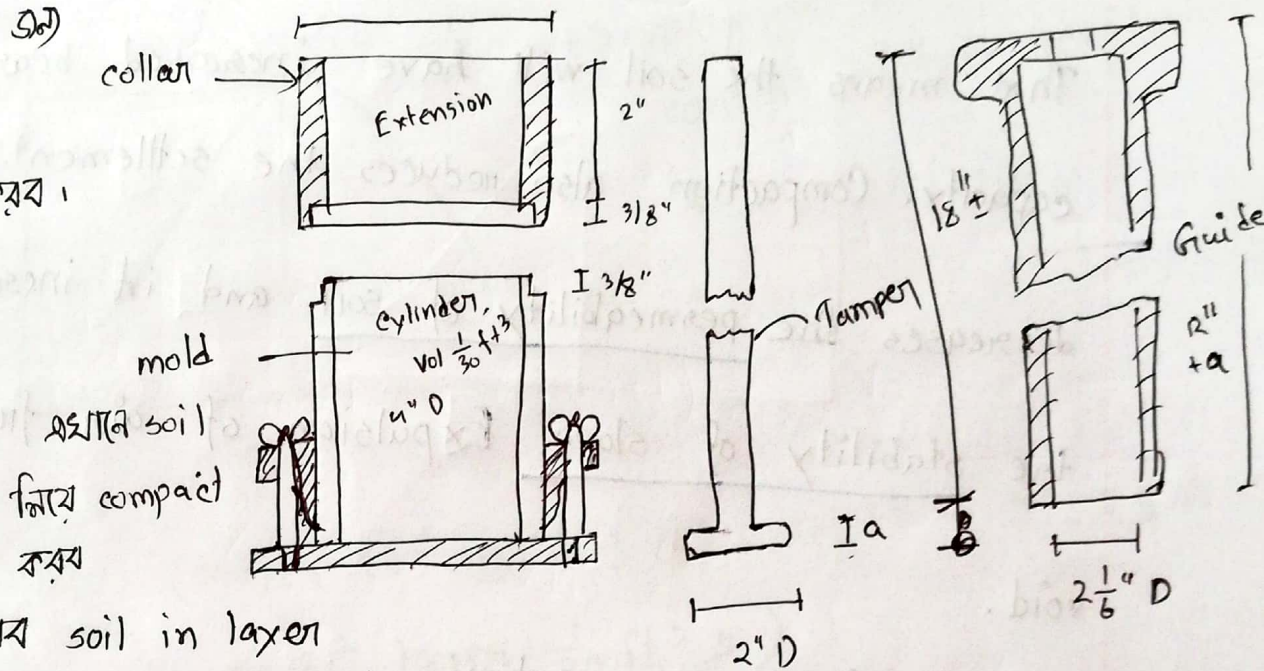 জন্য
collar
Extension
2"
3/8"
করব।
3/8"
cylinder,
vol 1/30 ft3
4" D
mold
এখানে soil
নিয়ে compact
করব
soil in layer
Tamper
18" ±
Guide
12"
+a
I a
2" D
2 1/6" D